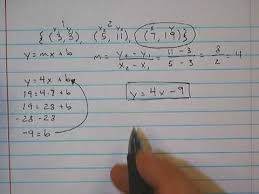 {(3,3), (5,11), (7,19)}
y=mx+b
m = y₂-y₁ / x₂-x₁ = 11-3 / 5-3 = 8/2 = 4
y=4x+b
19=4·7+b
19=28+b
-28 -28
-9=b
y=4x-9